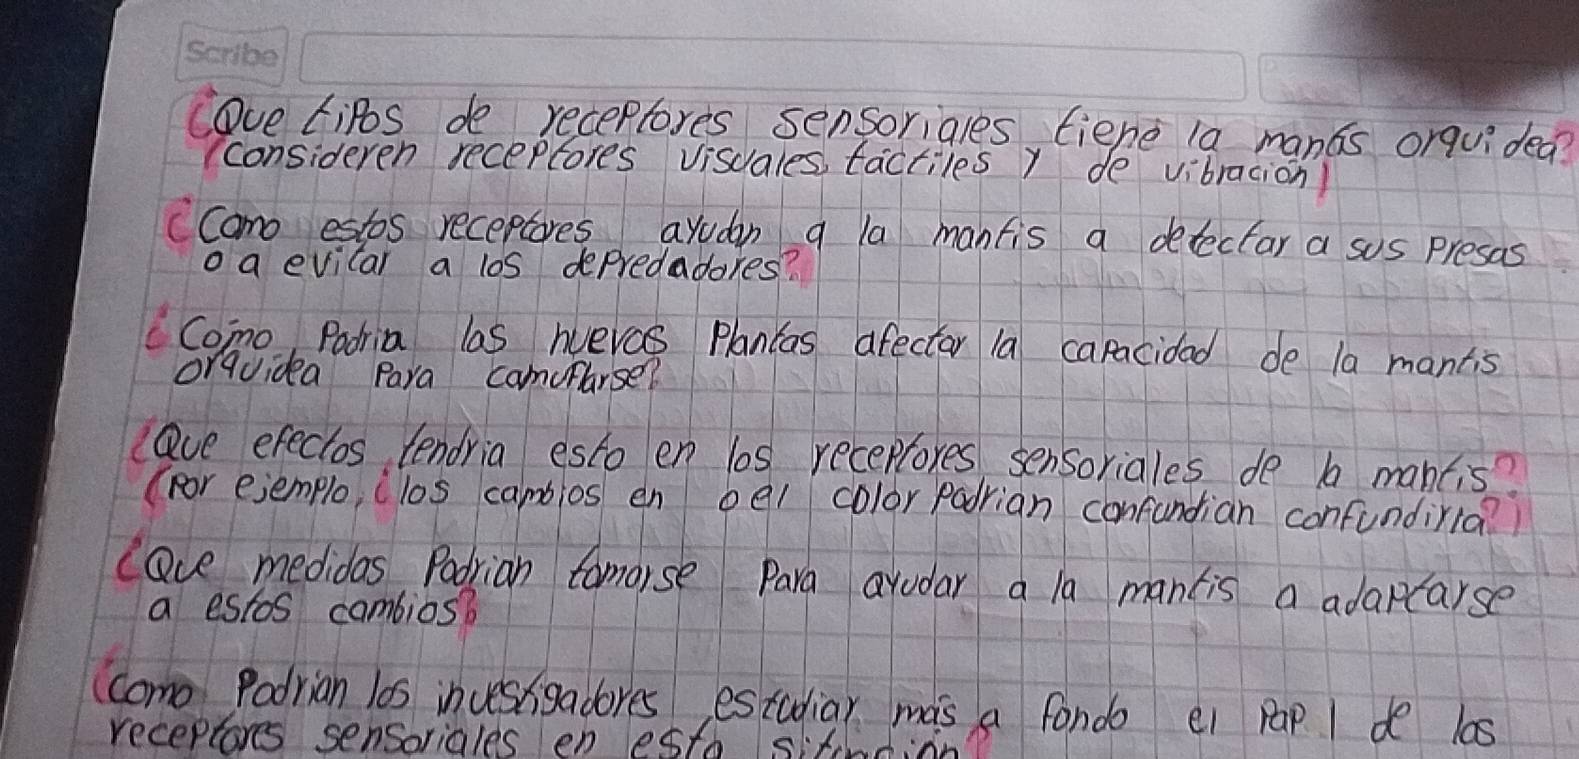 Scribe
¿Que tipos de receptores sensoriales tiene la mantis orquidea?
(consideren receptores visuales, tactiles y de vibración)
¿Como estos receptores ayudan a la mantis a detectar a sus presas
o a evitar a los depredadores?
¿Como Podria las nuevas Plantas afectar la capacidad de la mantis
orquidea Para camuflarse?
¿Que efectos tendria esto en los receptores sensoriales de la mantis?
(Por ejemplo, ¿los cambios en oel color podrian confundian confundirla?)
¿Que medidas Podrian tomarse Para ayudar a la mantis a adaptarse
a estos cambios?
¿como Podrian los investigadores estudiar más a fondo el Pap l de los
receptores sensoriales en esta situacion?